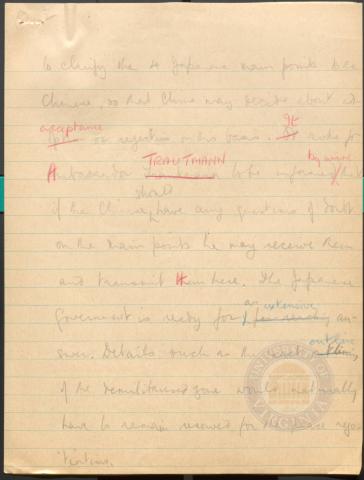 to clarify the 4 Japanese main points to the
Chinese, so that China may decide about
acceptance or rejection on this basis. It asks for
Ambassador TRAUTMANN to be informed by wire that
if the Chinese shall have any questions of doubt
on the main points he may receive them
and transmit them here. The Japanese
Government is ready for an extensive an-
swer. Details such as the exact outline
of the demilitarised zone would naturally
have to remain reserved for peace nego-
tiations.
UNIVERSITY OF VIRGINIA